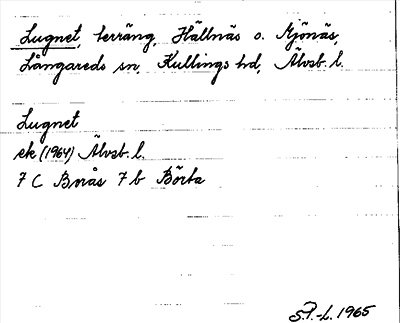 Lugnet, terräng, Hällnäs o. Mjönäs,
Långareds sn, Kullings hd, Älvsb. l.
Lugnet
ek (1964) Älvsb. l.
7 C Borås 7 b Börta
S.P.-L. 1965